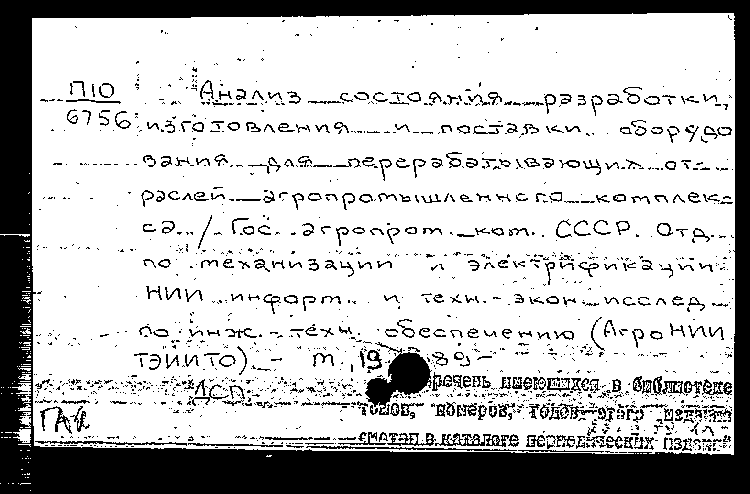 П10
6756
Анализ состояния разработки,
изготовления и поставки оборудо
вания для перерабатывающих от-
раслей агропромышленного комплек-
са / Гос. агропром. ком. СССР. Отд.
по механизации и электрификации
НИИ информ. и техн.-экон. исслед.
по инж.-техн. обеспечению (АгроНИИ
ТЭИИТО) - М., 19 89 -
ДСП
речень имеющихся в библиотеке
томов, номеров, годов этого издания
смотри в каталоге периодических изданий